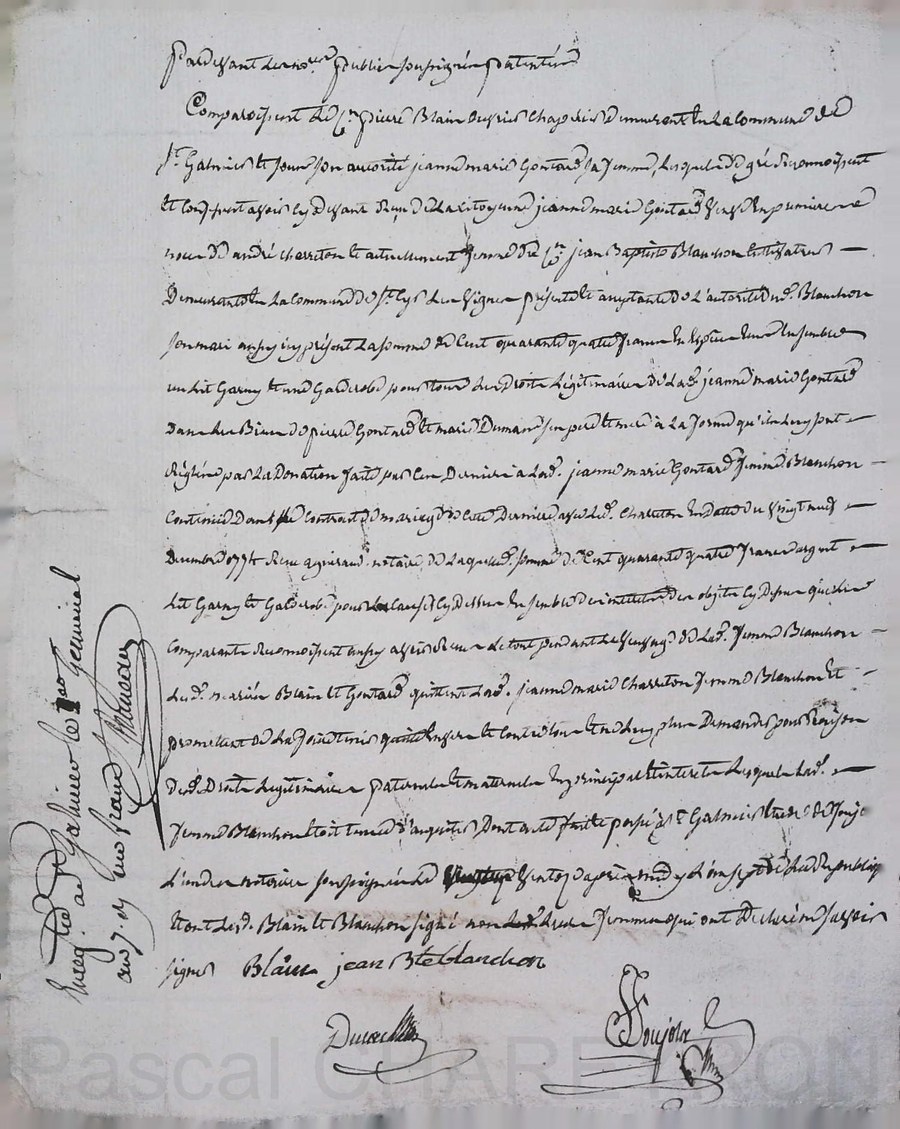 Pardevant les no.res publics soussignés patentés
Comparoissent le C.n pierre Blain ouvrier Chapelier Demeurant En La Commune de
S.t Galmier Et sous son autorité jeanne marie Gontard sa femme, Lesquels de gré Reconnoissent
Et Confessent avoir Cy devant Reçu de La Citoyenne jeanne marie Gontard veuve En premiere
noces de andré charreton Et actuellement femme du C.n jean Baptiste Blanchon Cultivateur
Demeurants En La Commune de S.t Cyr Les vignes présente Et acceptante De L'autorité dud. Blanchon
son mari aussy icy présent La somme de Cent quarante quatre francs En Espèce Ensemble
un Lit Garny Et une Garderobe pour tous Les Droits Légitimaires de Lad. jeanne marie Gontard
Dans Les Biens de pierre Gontard Et marie Dumand ses pere Et mere à La forme qu'ils Luy sont
Réglés par La Donation faite par Ces Derniers à Lad. jeanne marie Gontard femme Blanchon
Contenüe Dans Contrat de mariage de Cette Derniere avec Led. Charreton En Datte du vingt neuf
Decembre Reçu notaire, de Laquelle somme de Cent quarante quatre francs argent
Lit Garny Et Galderobe pour Les causes Cy Dessus Ensemble des objets Cy Dessus que Les
Comparants Reconnoissent aussy avoir Reçu Le tout pendant Le veuvage de Lad. femme Blanchon
Lesd. mariés Blain Et Gontard quittent Lad. jeanne marie Charreton femme Blanchon Et
promettent de La faire tenir quitte Envers Et Contre tous Et ne Luy plus Demander pour Raison
Desd. Droits Legitimaires paternels Et maternels En principal Et interets Lesquels Lad.
femme Blanchon Etoit tenue d'acquitter, Dont acte fait Et passé à S.t Galmier Etude de Soujol
L'un des notaires soussignés Le Ventose après midy L'an sept de La Republique
Et ont Lesd. Blain Et Blanchon signé non Leurs femmes qui ont Déclaré ne savoir
signer Blain jean Bte blanchon
Soujol
Enregistré a S.t Galmier le germinal
an 7. Reçu un franc
Pascal CHARRETON